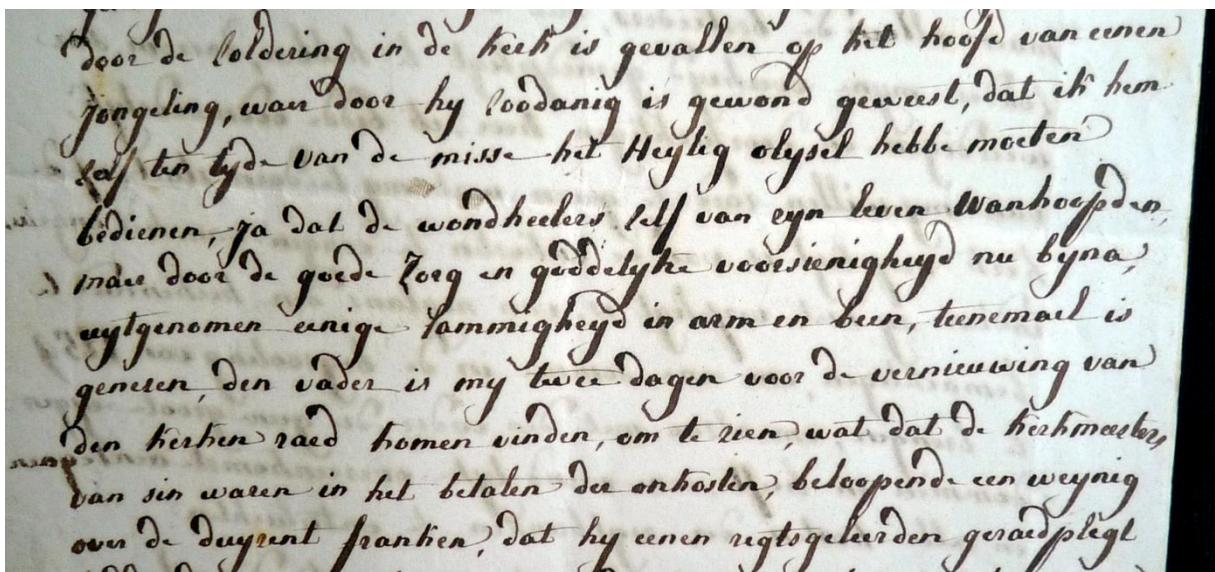 door de soldering in de kerk is gevallen op het hoofd van eenen
jongeling, waer door hy soodanig is gewond geweest, dat ik hem
self ten tyde van de misse het Heylig olysel hebbe moeten
bedienen, ja dat de wondheelers self van zyn leven wanhoopden,
maer door de goede zorg en goddelyke voorsienigheyd nu byna,
uytgenomen eenige lammigheyd in arm en been, teenemael is
genesen, den vader is my twee dagen voor de vernieuwing van
den kerken raed komen vinden, om te zien, wat dat de kerkmeesters
van sin waren in het betalen der onkosten, beloopende een weynig
over de duyzent franken, dat hy eenen regtsgeleerden geraedplegt